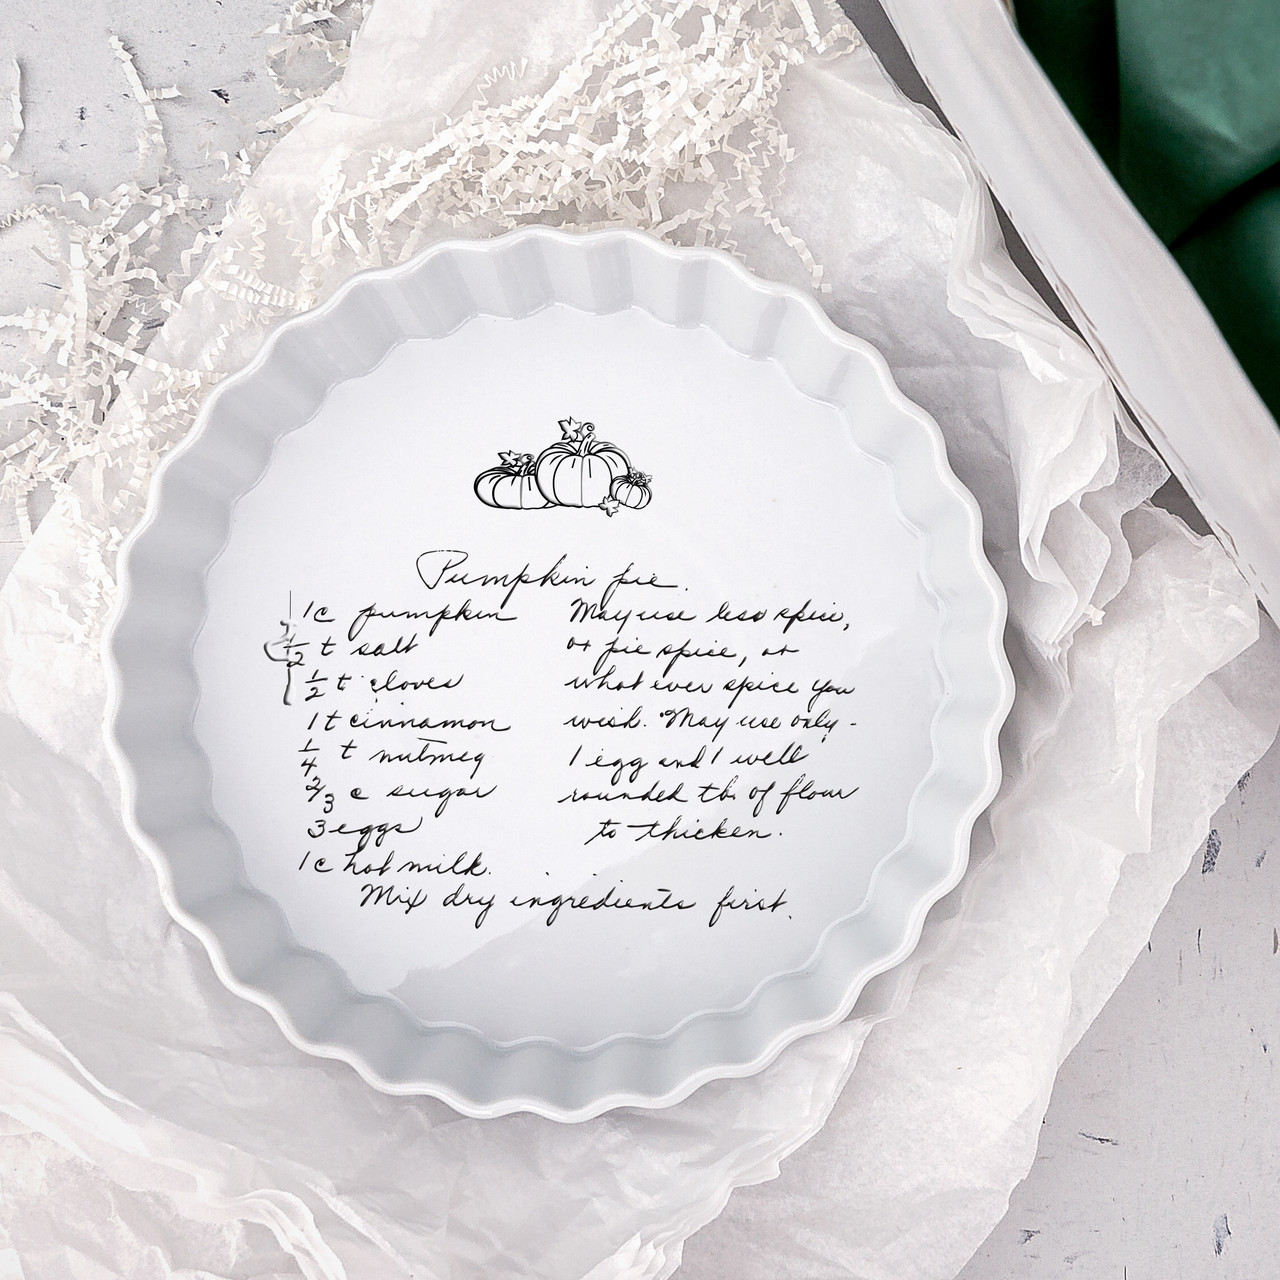 Pumpkin pie.
1c pumpkin
1/2 t salt
1/2 t cloves
1 t cinnamon
1/4 t nutmeg
2/3 c sugar
3 eggs
1c hot milk.
May use less spice,
or pie spice, or
what ever spice you
wish. May use only -
1 egg and 1 well
rounded tb. of flour
to thicken.
Mix dry ingredients first.